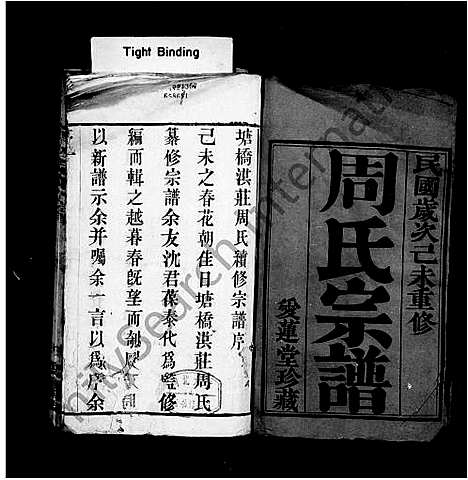 Tight Binding
民國歲次己未重修
周氏宗譜
愛蓮堂珍藏
塘橋淇莊周氏續修宗譜序
己未之春花朝佳日塘橋淇莊周氏
纂修宗譜余友沈君葆泰代爲監修
編而輯之越暮春既望而
以新譜示余并囑余一言以爲序余